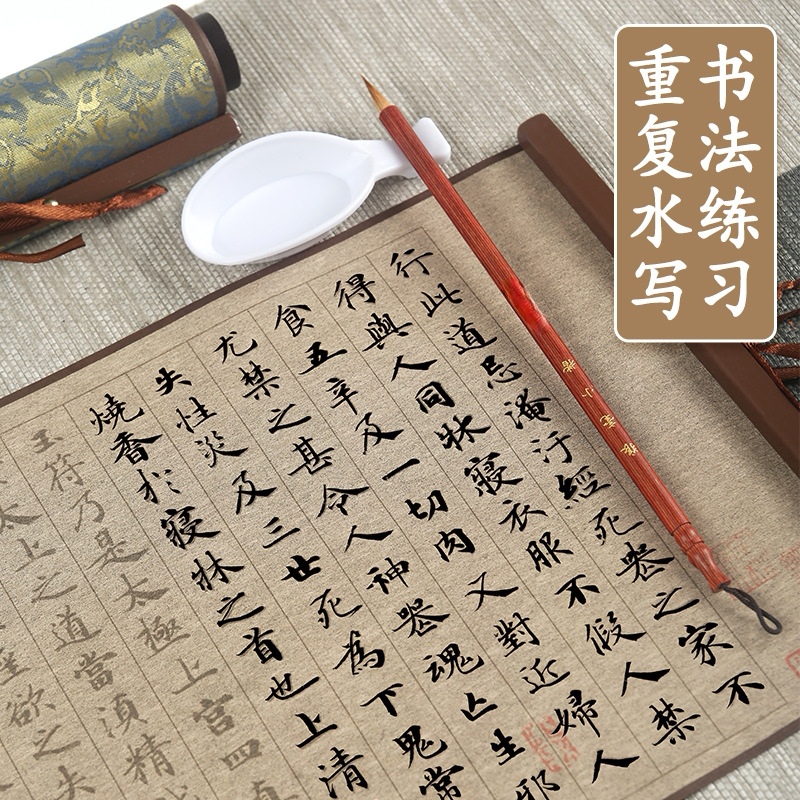 书法练习
重复水写
行此道忌淹汙經死喪之家不
得與人同牀寢衣服不假人禁
食五辛及一切肉又對近婦人
尤禁之甚令人神喪魂亡生邪
失性災及三世死為下鬼常
燒香於寢牀之首也上清
玉符乃是太極上宮四真
太上之道當須精
欲之